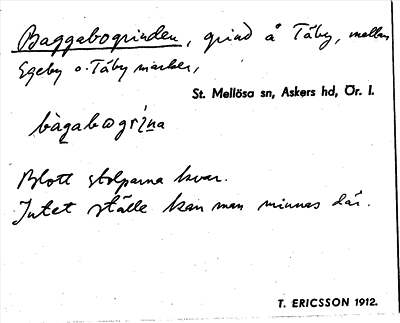 Baggabogrinden, grind å Täby, mellan
Egeby o. Täby marker,
St. Mellösa sn, Askers hd, Ör. l.
bàgabωgrìna
Blott stolparna kvar.
Intet ställe kan man minnas där.
T. ERICSSON 1912.